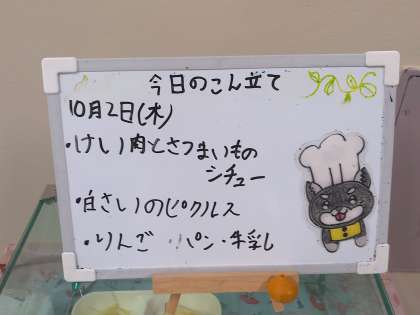 今日のこん立て
10月2日(木)
・けい肉とさつまいもの
シチュー
・白さいのピクルス
・りんご ・パン・牛乳